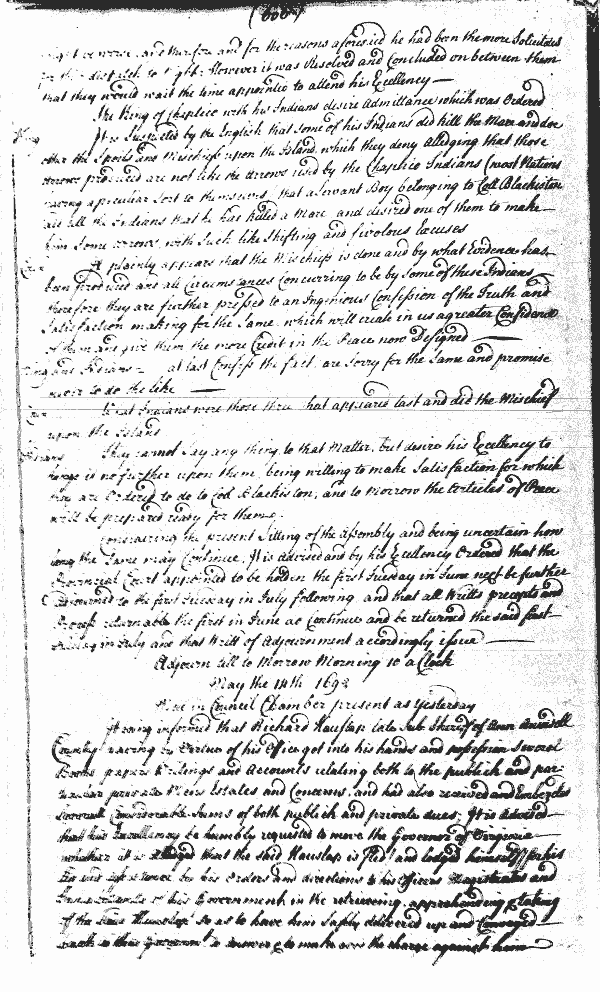 might be worse, and therefore and for the reasons aforesaid he had been the more Solicitous
for this dispatch to night. However it was Resolved and Concluded on between them
that they would wait the time appointed to attend his Excellency —
The King of Chaptico with his Indians desire Admittance which was Ordered
It is Suspected by the English that some of his Indians did kill the Mare and doe
other the Spoils and Mischiefs upon the Island, which they deny alledging that those
arrows produced are not like the arrows used by the Chaptico Indians (most Nations
having a peculiar Sort to themselves) that a Servant Boy belonging to Coll Blackiston
did tell the Indians that he has killed a Mare and desired one of them to make
him Some arrows, with Such like Shifting and frivolous Excuses
It plainly appears that the Mischief is done and by what Evidence has
been produced and all Circumstances Concurring to be by Some of these Indians
therefore they are further pressed to an Ingenious Confession of the Truth and
Satisfaction making for the Same, which will create in us a greater Confidence
of them and give them the more Credit in the Peace now Designed —
King and Indians - at last Confess the fact, are Sorry for the Same and promise
never to do the like —
What Indians were those three that appeared last and did the Mischief
upon the Island
Indians They cannot Say any thing to that Matter, but desire his Excellency to
charge it no further upon them, being willing to make Satisfaction for which
they are Ordered to do to Coll Blackiston, and to Morrow the Articles of Peace
will be prepared ready for them.
Considering the present Sitting of the Assembly and being uncertain how
long the Same may Continue, It is advised and by his Excellency Ordered that the
Provincial Court appointed to be holden the first Tuesday in June next be further
Adjourned to the first Tuesday in July following, and that all Writts precepts and
Process returnable the first in June do Continue and be returned the said first
Tuesday in July and that Writt of Adjournment accordingly issue —
Adjourn till to Morrow Morning 10 a Clock
May the 14th 1692
in Council Chamber present as Yesterday
Having informed that Richard late Sub Sheriff of Ann Arundell
County having by Virtue of his Office got into his hands and possession Several
Books papers Writings and Accounts relating both to the publick and par-
ticular private Mens Estates and Concerns, and had also received and Embezled
Several Considerable Sums of both publick and private dues; It is Advised
that his Excellency be humbly requested to move the Governor of Virginia
whither it is alledged that the said is fled and lodged himself for his
by his Orders and directions to his Officers Magistrates and
Inhabitants of his Government, in the retrieving, apprehending & taking
of the said so as to have him Safely delivered up and Conveyed
back to this Governmt to answer & to make over the charge against him